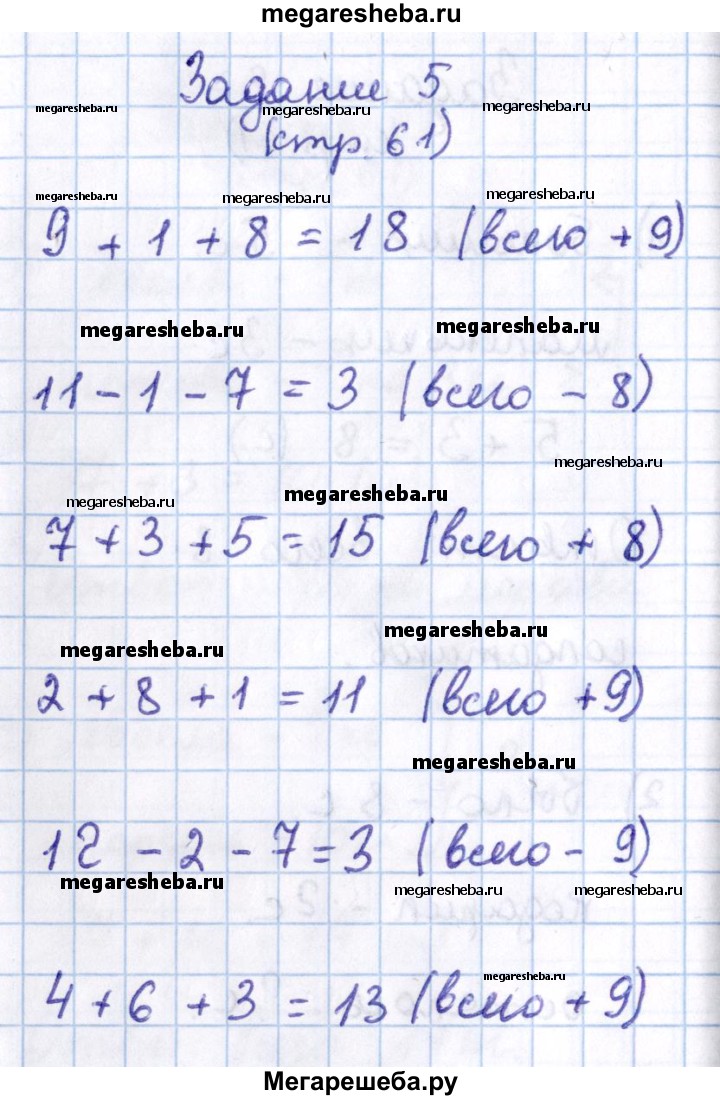 megaresheba.ru
Задание 5
megaresheba.ru megaresheba.ru megaresheba.ru
(стр. 61)
megaresheba.ru megaresheba.ru megaresheba.ru
9 + 1 + 8 = 18 (всего + 9)
megaresheba.ru megaresheba.ru
11 - 1 - 7 = 3 (всего - 8)
megaresheba.ru
megaresheba.ru megaresheba.ru
7 + 3 + 5 = 15 (всего + 8)
megaresheba.ru megaresheba.ru
2 + 8 + 1 = 11 (всего +9)
megaresheba.ru
12 - 2 - 7 = 3 (всего - 9)
megaresheba.ru megaresheba.ru megaresheba.ru
megaresheba.ru
4 + 6 + 3 = 13 (всего + 9)
Мегарешеба.ру